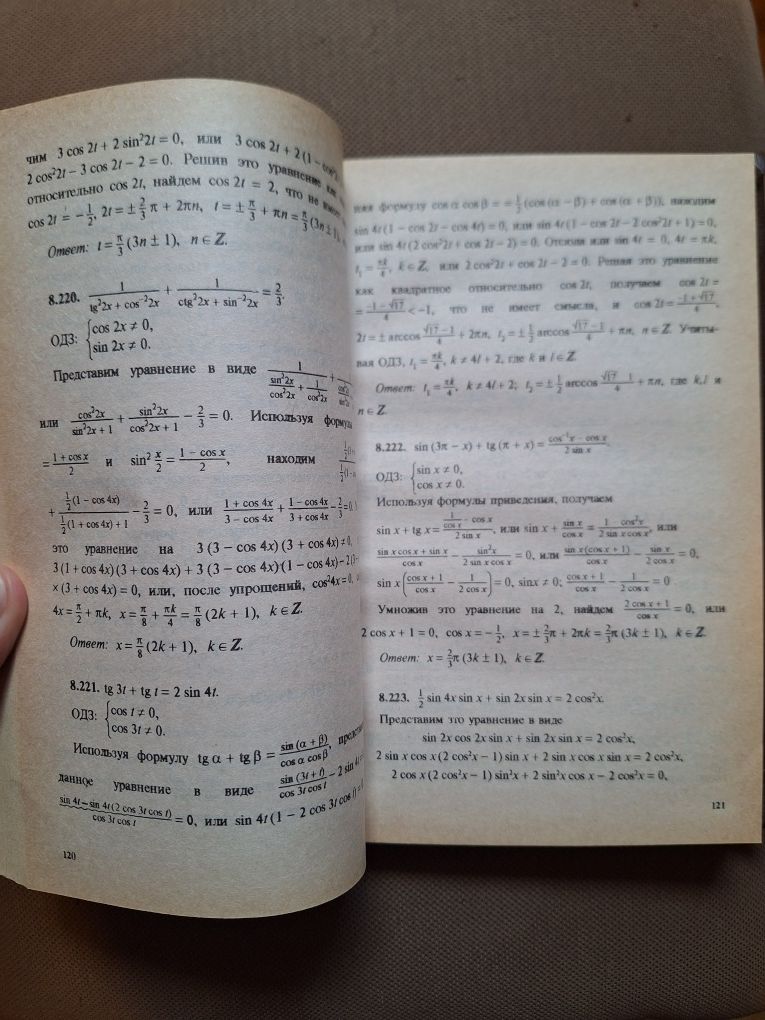 чим 3 cos 2t + 2 sin²2t = 0, или 3 cos 2t + 2 (1 − cos²
2 cos²2t − 3 cos 2t − 2 = 0. Решив это уравнение как
относительно cos 2t, найдем cos 2t = 2, что не имеет
cos 2t = −1/2, 2t = ± 2/3 π + 2πn, t = ± π/3 + πn = π/3 (3n ± 1),
Ответ: t = π/3 (3n ± 1), n ∈ Z.
8.220. 1/(tg²2x + cos⁻²2x) + 1/(ctg²2x + sin⁻²2x) = 2/3.
ОДЗ: {cos 2x ≠ 0, sin 2x ≠ 0.
Представим уравнение в виде 1/(sin²2x/cos²2x + 1/cos²2x) +
или cos²2x/(sin²2x + 1) + sin²2x/(cos²2x + 1) − 2/3 = 0. Используя формулы
= (1 + cos x)/2 и sin² x/2 = (1 − cos x)/2, находим
+ (1/2 (1 − cos 4x))/(1/2 (1 + cos 4x) + 1) − 2/3 = 0, или (1 + cos 4x)/(3 − cos 4x) + (1 − cos 4x)/(3 + cos 4x) − 2/3 = 0.
это уравнение на 3 (3 − cos 4x) (3 + cos 4x) ≠ 0,
3 (1 + cos 4x) (3 + cos 4x) + 3 (3 − cos 4x) (1 − cos 4x) − 2 (3
× (3 + cos 4x) = 0, или, после упрощений, cos²4x = 0,
4x = π/2 + πk, x = π/8 + πk/4 = π/8 (2k + 1), k ∈ Z.
Ответ: x = π/8 (2k + 1), k ∈ Z.
8.221. tg 3t + tg t = 2 sin 4t.
ОДЗ: {cos t ≠ 0, cos 3t ≠ 0.
Используя формулу tg α + tg β = sin (α + β)/(cos α cos β),
данное уравнение в виде sin (3t + t)/(cos 3t cos t) − 2 sin 4t
(sin 4t − sin 4t (2 cos 3t cos t))/(cos 3t cos t) = 0, или sin 4t (1 − 2 cos 3t cos t)
120
формулу cos α cos β = = 1/2 (cos (α − β) + cos (α + β)), находим
sin 4t (1 − cos 2t − cos 4t) = 0, или sin 4t (1 − cos 2t − 2 cos²2t + 1) = 0,
или sin 4t (2 cos²2t + cos 2t − 2) = 0. Отсюда или sin 4t = 0, 4t = πk,
t₁ = πk/4, k ∈ Z, или 2 cos²2t + cos 2t − 2 = 0. Решая это уравнение
как квадратное относительно cos 2t, получаем cos 2t =
= (−1 − √17)/4 < −1, что не имеет смысла, и cos 2t = (−1 + √17)/4,
2t = ± arccos (√17 − 1)/4 + 2πn, t₂ = ± 1/2 arccos (√17 − 1)/4 + πn, n ∈ Z. Учиты-
вая ОДЗ, t₁ = πk/4, k ≠ 4l + 2, где k и l ∈ Z.
Ответ: t₁ = πk/4, k ≠ 4l + 2; t₂ = ± 1/2 arccos (√17 − 1)/4 + πn, где k,l и
n ∈ Z.
8.222. sin (3π − x) + tg (π + x) = (cos⁻¹x − cos x)/(2 sin x).
ОДЗ: {sin x ≠ 0, cos x ≠ 0.
Используя формулы приведения, получаем
sin x + tg x = (1/cos x − cos x)/(2 sin x), или sin x + sin x/cos x = (1 − cos²x)/(2 sin x cos x), или
(sin x cos x + sin x)/cos x − sin²x/(2 sin x cos x) = 0, или sin x (cos x + 1)/cos x − sin x/(2 cos x) = 0,
sin x ((cos x + 1)/cos x − 1/(2 cos x)) = 0, sin x ≠ 0; (cos x + 1)/cos x − 1/(2 cos x) = 0
Умножив это уравнение на 2, найдем (2 cos x + 1)/cos x = 0, или
2 cos x + 1 = 0, cos x = −1/2, x = ± 2/3 π + 2πk = 2/3 π (3k ± 1), k ∈ Z.
Ответ: x = 2/3 π (3k ± 1), k ∈ Z.
8.223. 1/2 sin 4x sin x + sin 2x sin x = 2 cos²x.
Представим это уравнение в виде
sin 2x cos 2x sin x + sin 2x sin x = 2 cos²x,
2 sin x cos x (2 cos²x − 1) sin x + 2 sin x cos x sin x = 2 cos²x,
2 cos x (2 cos²x − 1) sin²x + 2 sin²x cos x − 2 cos²x = 0,
121